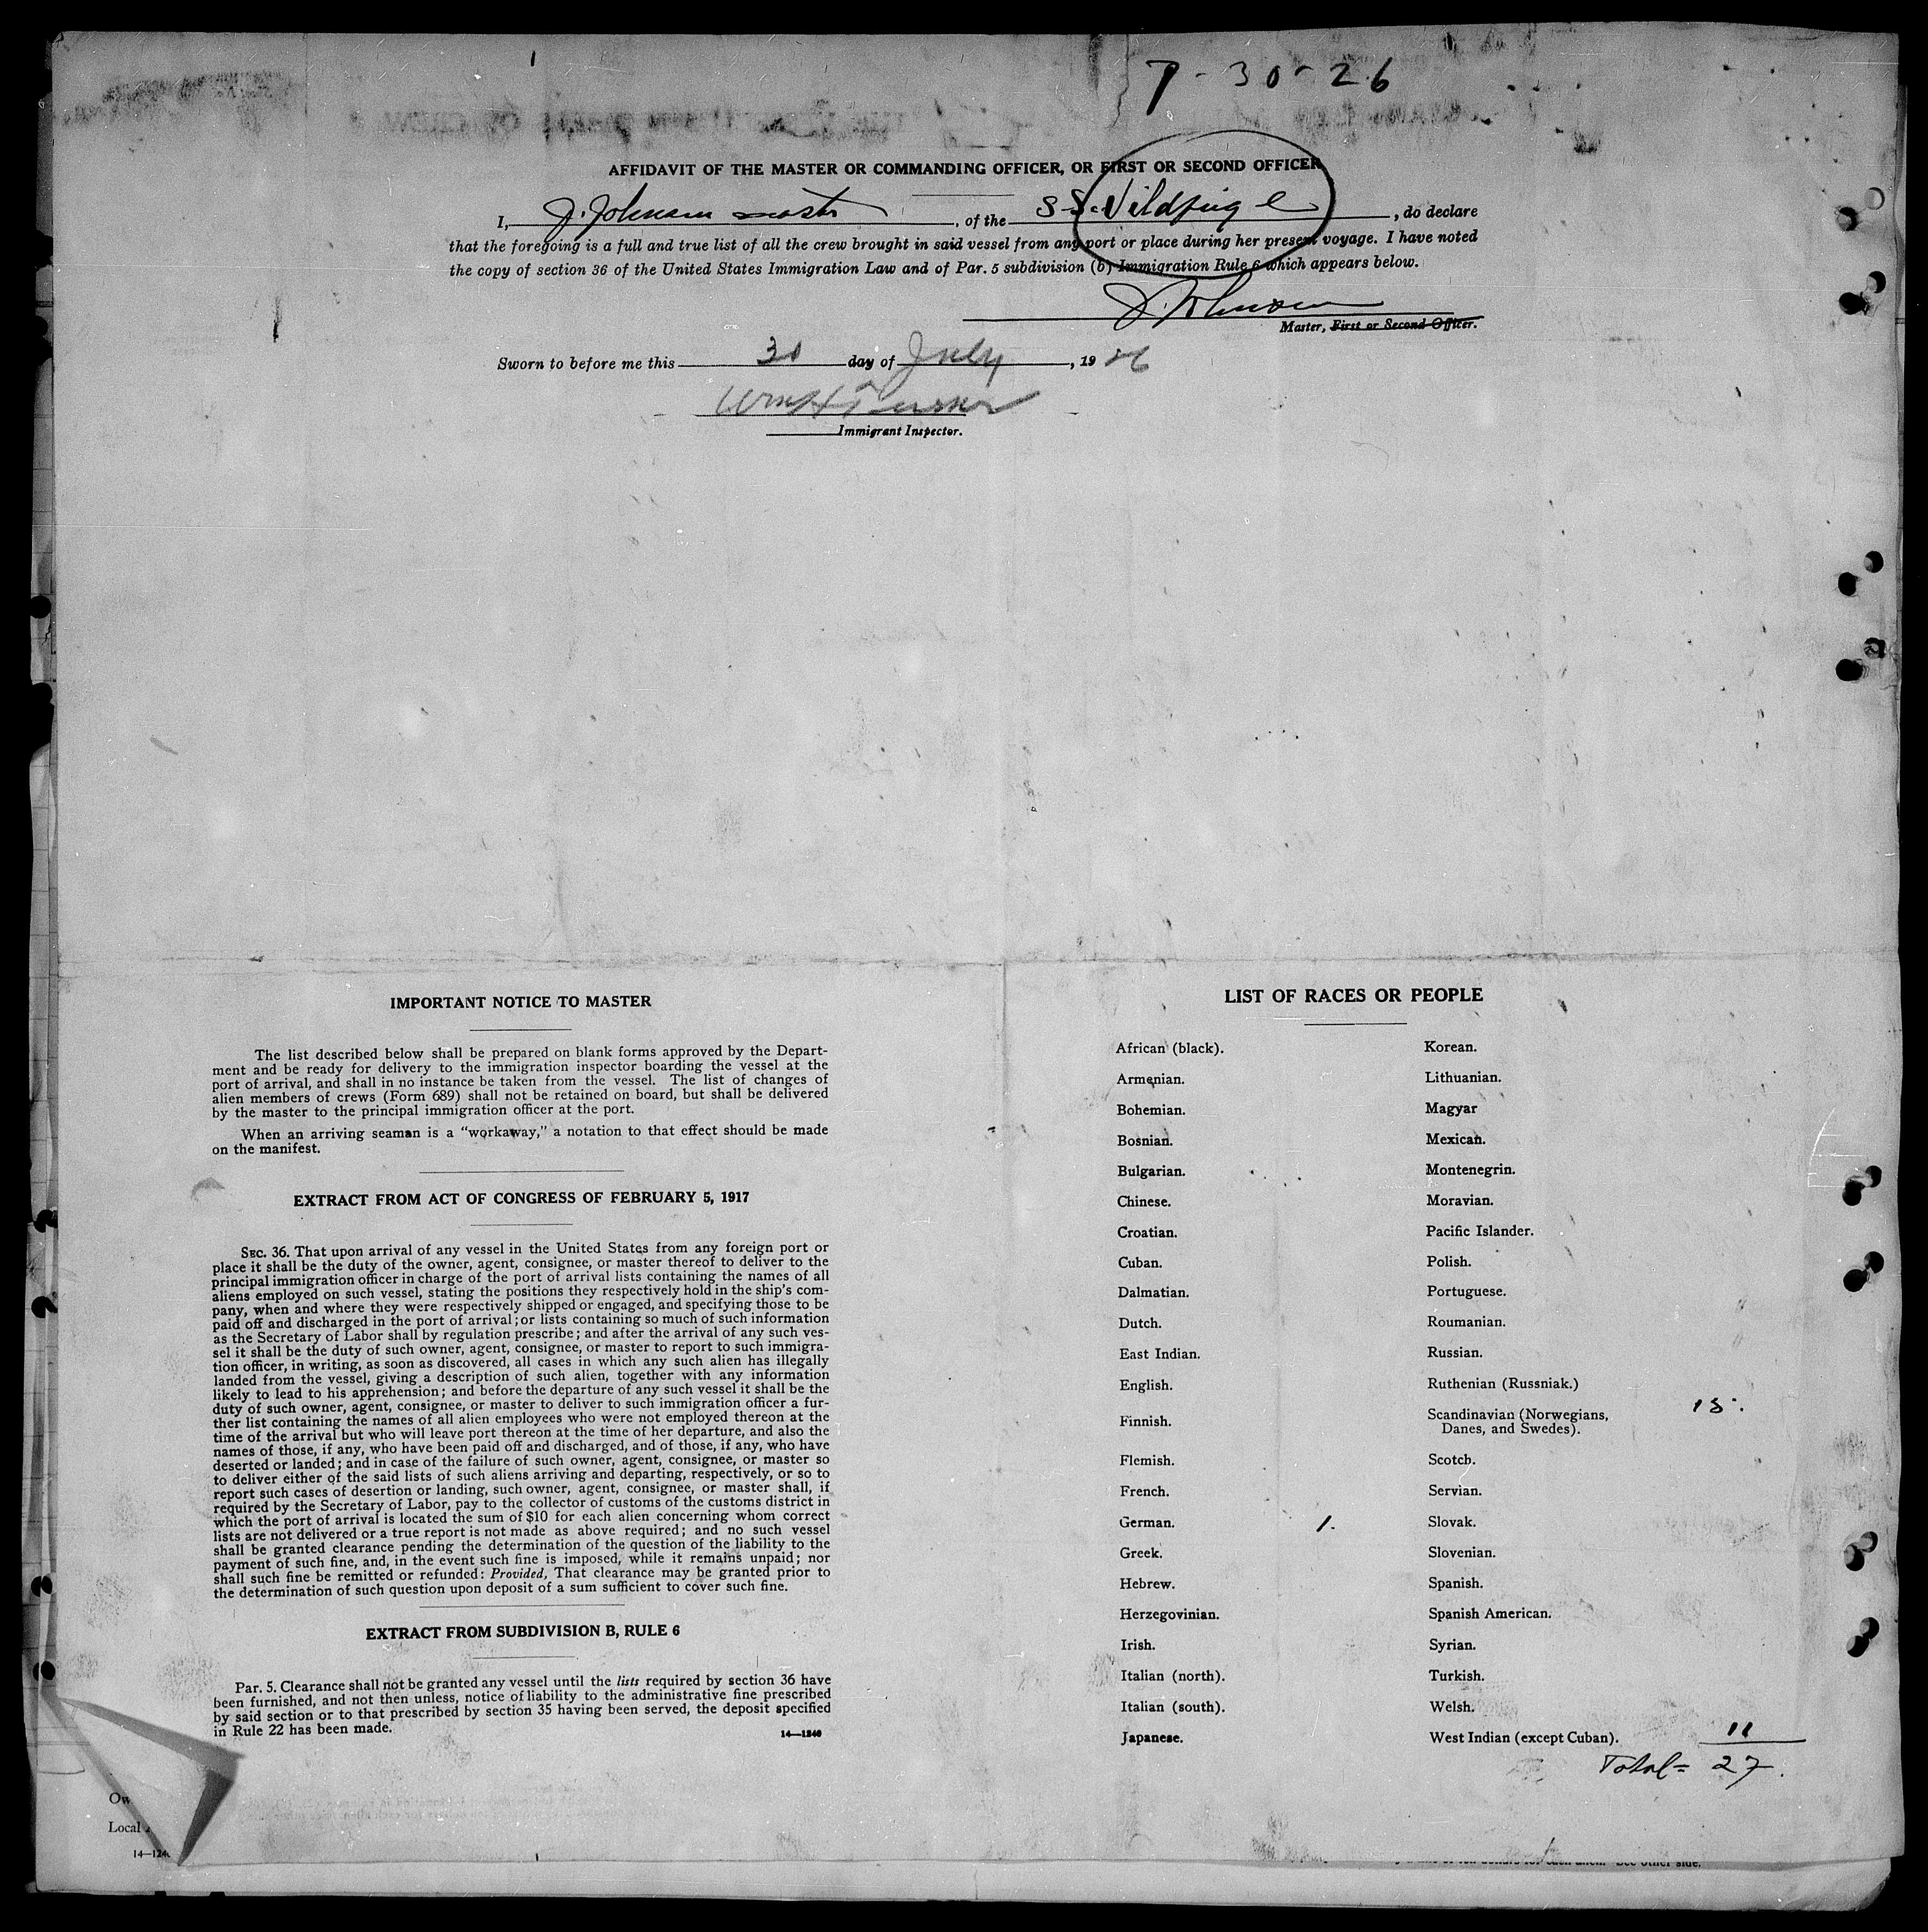 7-30-26
AFFIDAVIT OF THE MASTER OR COMMANDING OFFICER, OR FIRST OR SECOND OFFICER
I, J. Johnson master, of the S.S. Vildfugl, do declare
that the foregoing is a full and true list of all the crew brought in said vessel from any port or place during her present voyage. I have noted
the copy of section 36 of the United States Immigration Law and of Par. 5 subdivision (b) Immigration Rule 6 which appears below.
J. Johnson
Master, First or Second Officer.
Sworn to before me this 30 day of July, 1926
Immigrant Inspector.
IMPORTANT NOTICE TO MASTER
The list described below shall be prepared on blank forms approved by the Depart-
ment and be ready for delivery to the immigration inspector boarding the vessel at the
port of arrival, and shall in no instance be taken from the vessel. The list of changes of
alien members of crews (Form 689) shall not be retained on board, but shall be delivered
by the master to the principal immigration officer at the port.
When an arriving seaman is a "workaway," a notation to that effect should be made
on the manifest.
EXTRACT FROM ACT OF CONGRESS OF FEBRUARY 5, 1917
SEC. 36. That upon arrival of any vessel in the United States from any foreign port or
place it shall be the duty of the owner, agent, consignee, or master thereof to deliver to the
principal immigration officer in charge of the port of arrival lists containing the names of all
aliens employed on such vessel, stating the positions they respectively hold in the ship's com-
pany, when and where they were respectively shipped or engaged, and specifying those to be
paid off and discharged in the port of arrival; or lists containing so much of such information
as the Secretary of Labor shall by regulation prescribe; and after the arrival of any such ves-
sel it shall be the duty of such owner, agent, consignee, or master to report to such immigra-
tion officer, in writing, as soon as discovered, all cases in which any such alien has illegally
landed from the vessel, giving a description of such alien, together with any information
likely to lead to his apprehension; and before the departure of any such vessel it shall be the
duty of such owner, agent, consignee, or master to deliver to such immigration officer a fur-
ther list containing the names of all alien employees who were not employed thereon at the
time of the arrival but who will leave port thereon at the time of her departure, and also the
names of those, if any, who have been paid off and discharged, and of those, if any, who have
deserted or landed; and in case of the failure of such owner, agent, consignee, or master so
to deliver either of the said lists of such aliens arriving and departing, respectively, or so to
report such cases of desertion or landing, such owner, agent, consignee, or master shall, if
required by the Secretary of Labor, pay to the collector of customs of the customs district in
which the port of arrival is located the sum of $10 for each alien concerning whom correct
lists are not delivered or a true report is not made as above required; and no such vessel
shall be granted clearance pending the determination of the question of the liability to the
payment of such fine, and, in the event such fine is imposed, while it remains unpaid; nor
shall such fine be remitted or refunded: Provided, That clearance may be granted prior to
the determination of such question upon deposit of a sum sufficient to cover such fine.
EXTRACT FROM SUBDIVISION B, RULE 6
Par. 5. Clearance shall not be granted any vessel until the lists required by section 36 have
been furnished, and not then unless, notice of liability to the administrative fine prescribed
by said section or to that prescribed by section 35 having been served, the deposit specified
in Rule 22 has been made.
14—1240
Ow
Local
14—124
LIST OF RACES OR PEOPLE
African (black).
Armenian.
Bohemian.
Bosnian.
Bulgarian.
Chinese.
Croatian.
Cuban.
Dalmatian.
Dutch.
East Indian.
English.
Finnish.
Flemish.
French.
German. 1.
Greek.
Hebrew.
Herzegovinian.
Irish.
Italian (north).
Italian (south).
Japanese.
Korean.
Lithuanian.
Magyar
Mexican.
Montenegrin.
Moravian.
Pacific Islander.
Polish.
Portuguese.
Roumanian.
Russian.
Ruthenian (Russniak.)
Scandinavian (Norwegians, 15.
Danes, and Swedes).
Scotch.
Servian.
Slovak.
Slovenian.
Spanish.
Spanish American.
Syrian.
Turkish.
Welsh.
West Indian (except Cuban). 11
Total= 27.
See other side.